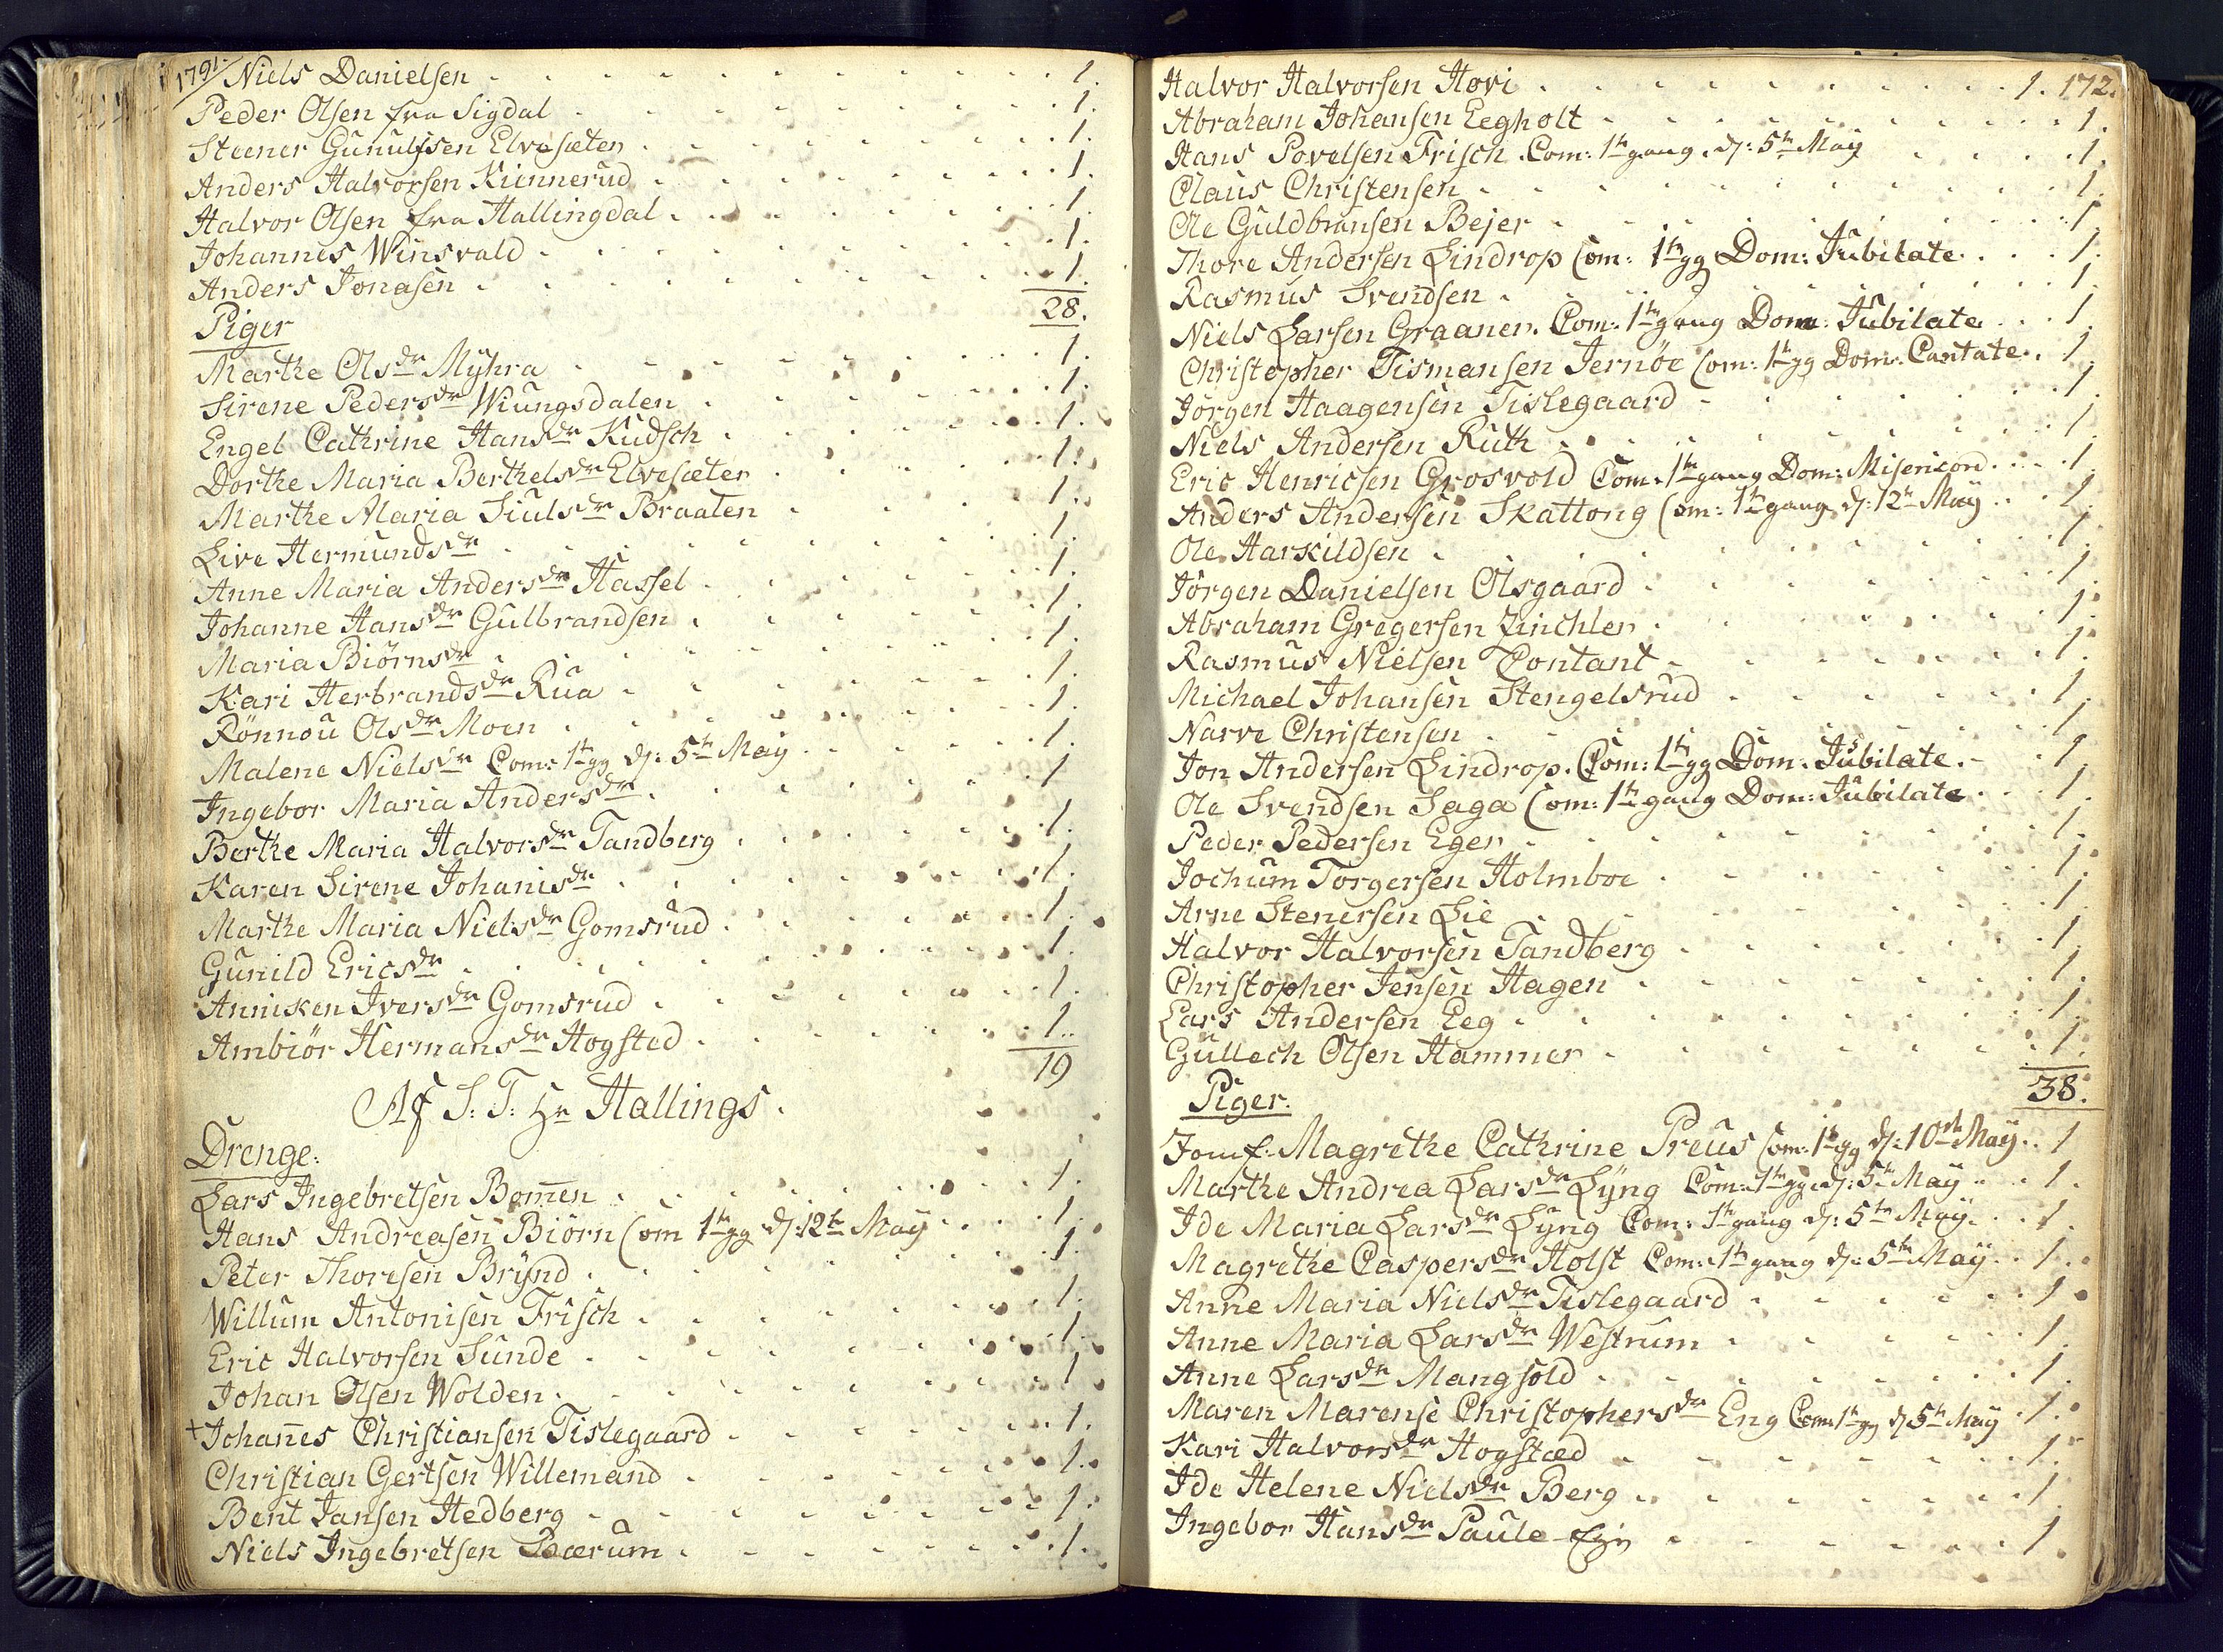 1791. Niels Danielsen . . . 1.
Peder Olsen fra Sigdal . . . 1.
Steener Gunulfsen Elvesæter . . . 1.
Anders Halvorsen Kinnerud . . . 1.
Halvor Olsen fra Hallingdal . . . 1.
Johannes Winsvald . . . 1.
Anders Jonasen . . . 1.
28.
Piger
Marthe Olsdr Myhra . . . 1.
Sirene Pedersdr Wiungsdalen . . . 1.
Engel Cathrine Hansdr Kudsch . . . 1.
Dorthe Maria Berthelsdr Elvesæter . . . 1.
Marthe Maria Siulsdr Braaten . . . 1.
Live Hermundsdr . . . 1.
Anne Maria Andersdr Hassel . . . 1.
Johanne Hansdr Gulbrandsen . . . 1.
Maria Biörnsdr . . . 1.
Kari Herbrandsdr Rua . . . 1.
Rönnou Olsdr Moen . . . 1.
Malene Nielsdr Com: 1te gg d: 5te May . . . 1.
Ingebor Maria Andersdr . . . 1
Berthe Maria Halvorsdr Tandberg . . . 1.
Karen Sirene Johanisdr . . . 1.
Marthe Maria Nielsdr Gomsrud . . . 1.
Gunild Ericsdr . . . 1.
Anniken Iversdr Gomsrud . . . 1.
Ambiör Hermansdr Hogsted . . . 1.
19
Af S: T: Hr Hallings.
Drenge:
Lars Ingebretsen Bom̄en . . . 1.
Hans Andreasen Biörn Com 1te gg d: 12te May . . . 1.
Peter Thoresen Brynd . . . 1.
Willum Antonisen Frisch . . . 1.
Eric Halvorsen Sunde . . . 1.
Johan Olsen Wolden . . . 1
+ Johan̄es Christiansen Tislegaard . . . 1.
Christian Gertsen Willemand . . . 1.
Bent Jansen Hedberg . . . 1.
Niels Ingebretsen Bærum . . . 1.
Halvor Halvorsen Hovi . . . 1. 172.
Abraham Johansen Eegholt . . . 1.
Hans Povelsen Frisch. Com: 1te gang d: 5te May . . . 1.
Claus Christensen . . . 1.
Ole Guldbransen Bejer . . . 1.
Thore Andersen Lindrop Com: 1te gg Dom: Jubilate . . . 1.
Rasmus Svendsen . . . 1.
Niels Larsen Graaner. Com: 1te gang Dom: Jubilate . . . 1
Christopher Tismansen Jernöe Com: 1te gg Dom: Cantate . . 1.
Jörgen Haagensen Tislegaard . . . 1.
Niels Andersen Ruth . . . 1
Eric Henricsen Grosvold Com: 1te gang Dom: Misericord . . . 1
Anders Andersen Skattong Com: 1te gang d: 12te May . . . 1.
Ole Harskildsen . . . 1
Jörgen Danielsen Olsgaard . . . 1
Abraham Gregersen Zinchler . . . 1.
Rasmus Nielsen Contant . . . 1.
Michael Johansen Stengelsrud . . . 1.
Narve Christensen . . . 1
Jon Andersen Lindrop. Com: 1te gg Dom: Jubilate . . 1
Ole Svendsen Saga Com: 1te gang Dom: Jubilate . . . 1.
Peder Pedersen Eger . . . 1.
Jochum Torgersen Holmboe . . . 1.
Arne Stenersen Lie . . . 1
Halvor Halvorsen Tandberg . . . 1.
Christopher Jensen Hagen . . . 1.
Lars Andersen Eeg . . . 1.
Gullech Olsen Hammer . . . 1.
38.
Piger.
Jomf: Magrethe Cathrine Preus Com: 1te gg d: 10de May . . 1
Marthe Andrea Larsdr Lyng Com: 1te gg d: 5te May . . 1.
Ide Maria Larsdr Lyng Com: 1te gang d: 5te May . . 1.
Magrethe Caspersdr Holst Com: 1te gang d: 5te May . . 1.
Anne Maria Nielsdr Tislegaard . . . 1.
Anne Maria Larsdr Westrum . . . 1.
Anne Larsdr Mangsold . . . 1.
Maren Marense Christophersdr Eng Com: 1te gg d 5te May . 1.
Kari Halvorsdr Hogstæd . . . 1.
Ide Helene Nielsdr Berg . . . 1.
Ingebor Hansdr Paule . . . 1.